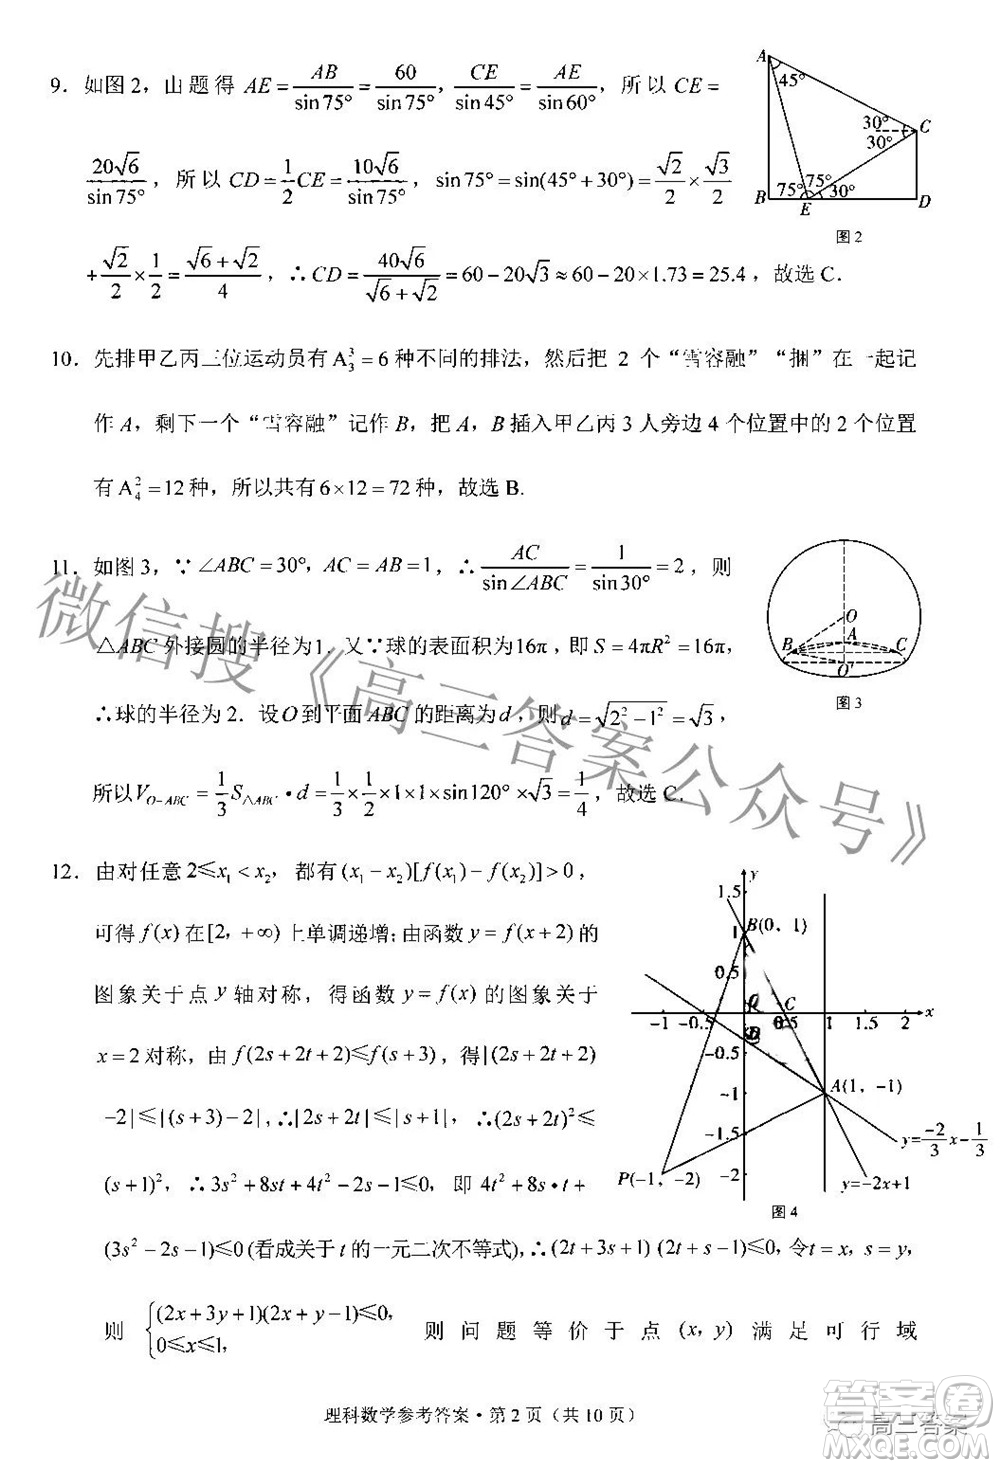 9．如图2，由题得 AE = AB/sin75° = 60/sin75°，CE/sin45° = AE/sin60°，所以 CE =
20√6/sin75°，所以 CD = 1/2 CE = 10√6/sin75°，sin75° = sin(45°+30°) = √2/2 × √3/2
+ √2/2 × 1/2 = (√6+√2)/4，∴CD = 40√6/(√6+√2) = 60−20√3 ≈ 60−20×1.73 = 25.4，故选 C.
A
45°
30°
30°
C
75°
75°
30°
B
E
D
图2
10．先排甲乙丙三位运动员有 A₃³ = 6 种不同的排法，然后把 2 个“雪容融”“捆”在一起记
作 A，剩下一个“雪容融”记作 B，把 A，B 插入甲乙丙 3 人旁边 4 个位置中的 2 个位置
有 A₄² = 12 种，所以共有 6×12 = 72 种，故选 B.
11．如图3，∵∠ABC = 30°，AC = AB = 1，∴AC/sin∠ABC = 1/sin30° = 2，则
△ABC 外接圆的半径为1．又∵球的表面积为16π，即 S = 4πR² = 16π，
∴球的半径为 2．设 O 到平面 ABC 的距离为 d，则 d = √(2²−1²) = √3，
所以 V_{O−ABC} = 1/3 S_{△ABC}·d = 1/3 × 1/2 ×1×1×sin120°×√3 = 1/4，故选 C．
O
A
B
C
O′
图3
12．由对任意 2≤x₁<x₂，都有 (x₁−x₂)[f(x₁)−f(x₂)]>0，
可得 f(x) 在 [2，+∞) 上单调递增；由函数 y = f(x+2) 的
图象关于点 y 轴对称，得函数 y = f(x) 的图象关于
x = 2 对称，由 f(2s+2t+2)≤f(s+3)，得|(2s+2t+2)
−2|≤|(s+3)−2|，∴|2s+2t|≤|s+1|，∴(2s+2t)²≤
(s+1)²，∴3s²+8st+4t²−2s−1≤0，即 4t²+8s·t+
(3s²−2s−1)≤0 (看成关于 t 的一元二次不等式)，∴(2t+3s+1)(2t+s−1)≤0，令 t = x，s = y，
则 {(2x+3y+1)(2x+y−1)≤0，0≤x≤1， 则问题等价于点 (x，y) 满足可行域
y
1.5
1
B(0，1)
0.5
C
−1
−0.5
0
0.5
1
1.5
2
x
−0.5
−1
A(1，−1)
−1.5
y=−2/3x−1/3
P(−1，−2)
−2
y=−2x+1
图4
理科数学参考答案·第 2 页（共 10 页）
微信搜《高三答案公众号》
高三答案
答案圈
MXQE.COM